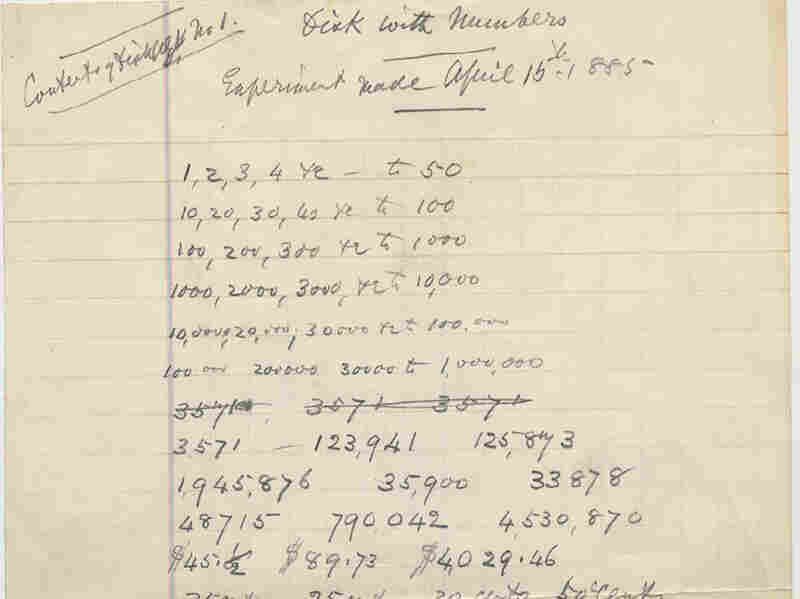 Contents of Disk No 1.
Disk with Numbers
Experiment made April 15th 1885
1, 2, 3, 4 &c — to 50
10, 20, 30, 40 &c to 100
100, 200, 300 &c to 1000
1000, 2000, 3000, &c to 10,000
10,000, 20,000, 30000 &c to 100,000
100000 200000 30000 to 1,000,000
3571 3571 3571
3571 — 123,941 125,873
1,945,876 35,900 33878
48715 790042 4,530,870
$45.½ $89.73 $4,029.46